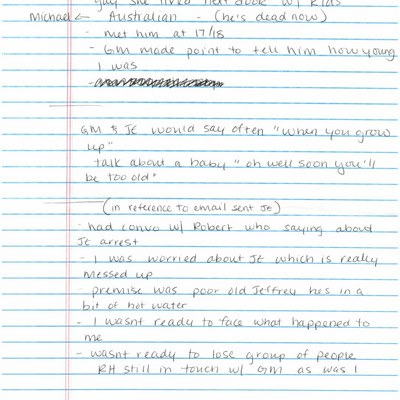 guy she lived next door w/ kids
Michael ← Australian - (he's dead now)
- met him at 17/18
- GM made point to tell him how young
I was
-
GM & JE would say often "when you grow
up"
talk about a baby "oh well soon you'll
be too old"
(in reference to email sent JE)
- had convo w/ Robert who saying about
JE arrest
- I was worried about JE which is really
messed up
- premise was poor old Jeffrey hes in a
bit of hot water
- I wasnt ready to face what happened to
me
- wasnt ready to lose group of people
RH still in touch w/ GM as was I